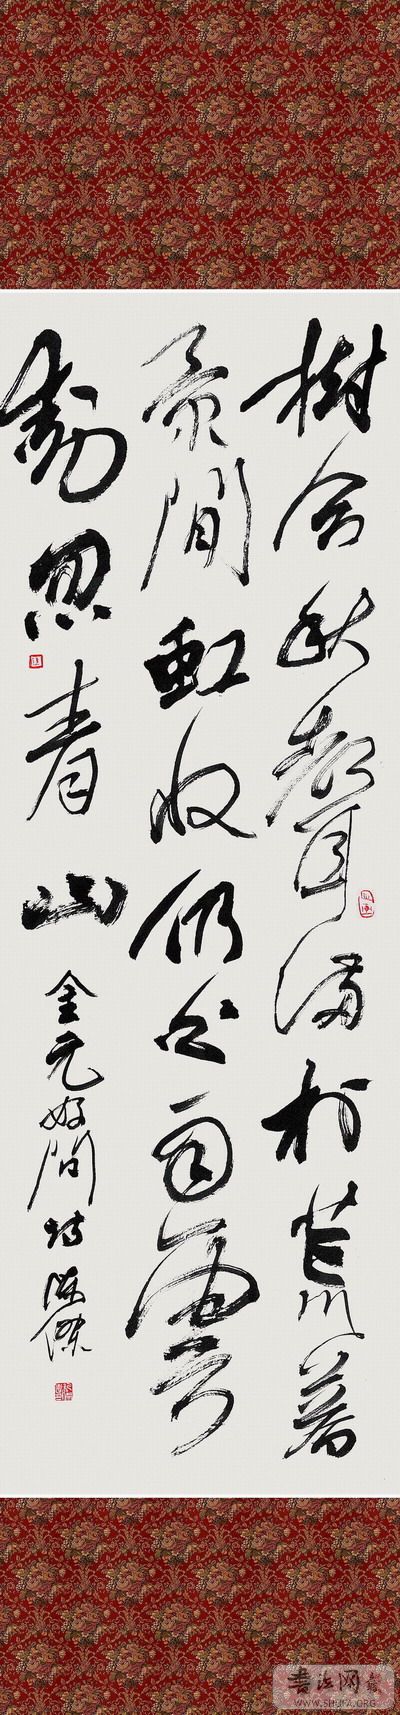 樹合秋聲滿村荒暮
景間虹收仍白雨雲
動忽青山
金元好問詩 陳傑
書法网
WWW.SHUFA.ORG